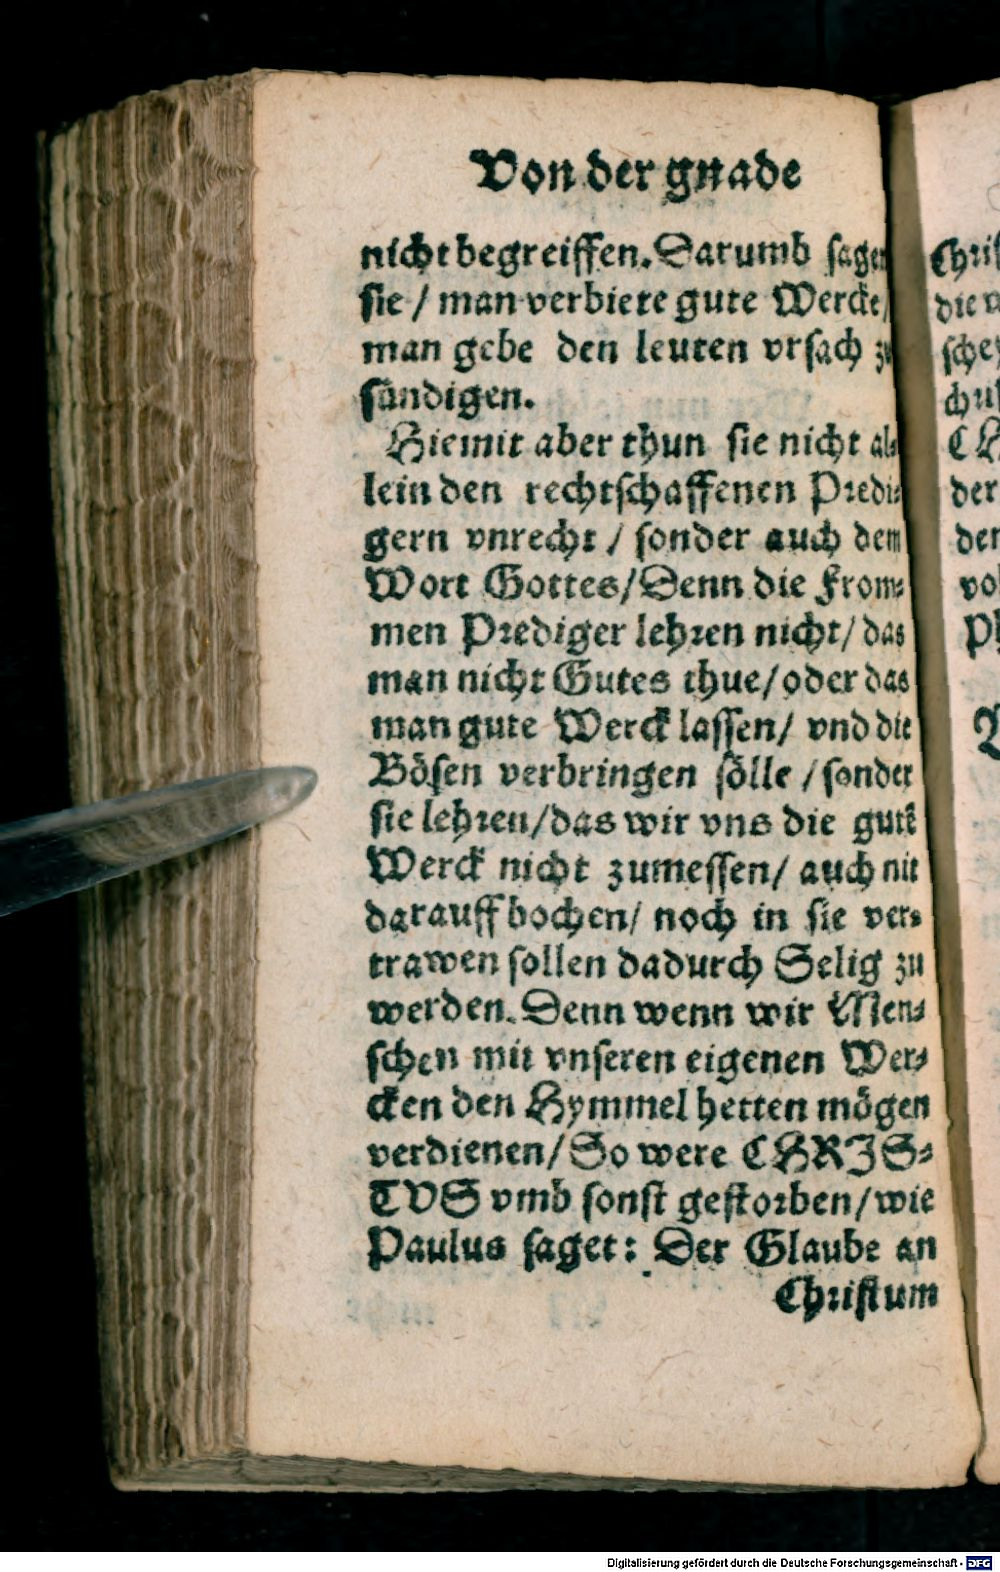 Von der gnade
nicht begreiffen. Darumb sagen
sie / man verbiete gute Wercke /
man gebe den leuten vrsach zu
sündigen.
Hiemit aber thun sie nicht al⸗
lein den rechtschaffenen Predi⸗
gern vnrecht / sonder auch dem
Wort Gottes / Denn die From⸗
men Prediger lehren nicht / das
man nicht Gutes thue / oder das
man gute Werck lassen / vnd die
Bösen verbringen sölle / sonder
sie lehren / das wir vns die gutẽ
Werck nicht zumessen / auch nit
darauff bochen / noch in sie ver⸗
trawen sollen dadurch Selig zu
werden. Denn wenn wir Men⸗
schen mit vnseren eigenen Wer⸗
cken den Hymmel hetten mögen
verdienen / So were CHRIS⸗
TVS vmb sonst gestorben / wie
Paulus saget: Der Glaube an
Christum
Digitalisierung gefördert durch die Deutsche Forschungsgemeinschaft - DFG